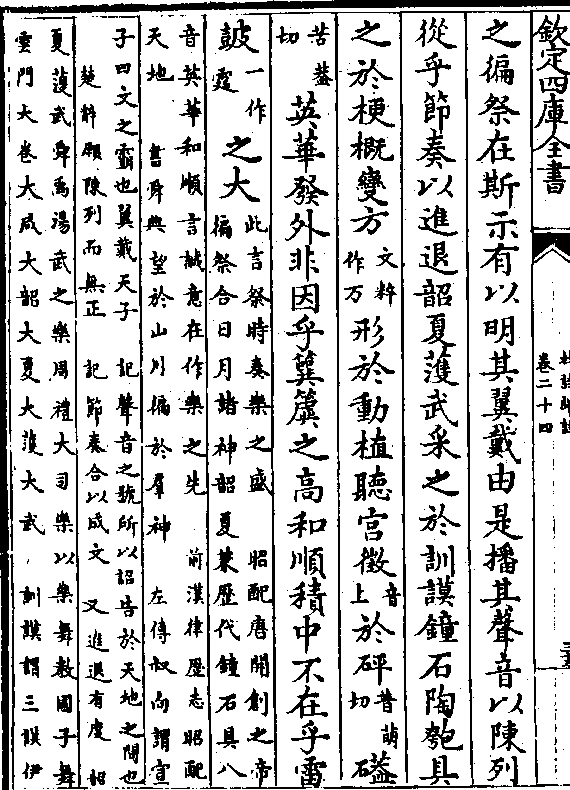 欽定四庫全書
卷二十四
之徧祭在斯示有以明其翼戴由是播其聲音以陳列
從乎節奏以進退韶夏濩武采之於訓謨鐘石陶匏具
之於梗概變方文粹作万形於動植聽宮徵音上於砰普萌切礚
苦蓋切英華發外非因乎簨簴之高和順積中不在乎雷
鼓一作霆之大此言祭時奏樂之盛 昭配唐開創之帝徧祭合日月諸神韶夏兼歷代鐘石具八
音英華和順言誠意在作樂之先 前漢律歴志昭配
天地 書舜典望於山川徧於羣神 左傳叔向謂宣
子曰文之霸也翼戴天子 記聲音之號所以詔告於天地之間也
楚辭願陳列而無正 記節奏合以成文 又進退有度 韶
夏濩武舜禹湯武之樂周禮大司樂以樂舞教國子舞
雲門大卷大咸大韶大夏大濩大武 訓謨謂三謨伊